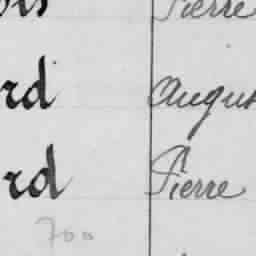 Pierre
rd Augus
rd Pierre
700